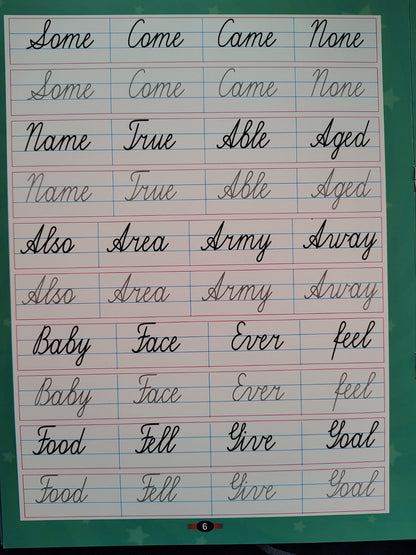 Some Come Came None
Some Come Came None
Name True Able Aged
Name True Able Aged
Also Area Army Away
Also Area Army Away
Baby Face Ever feel
Baby Face Ever feel
Food Fell Give Goal
Food Fell Give Goal
6